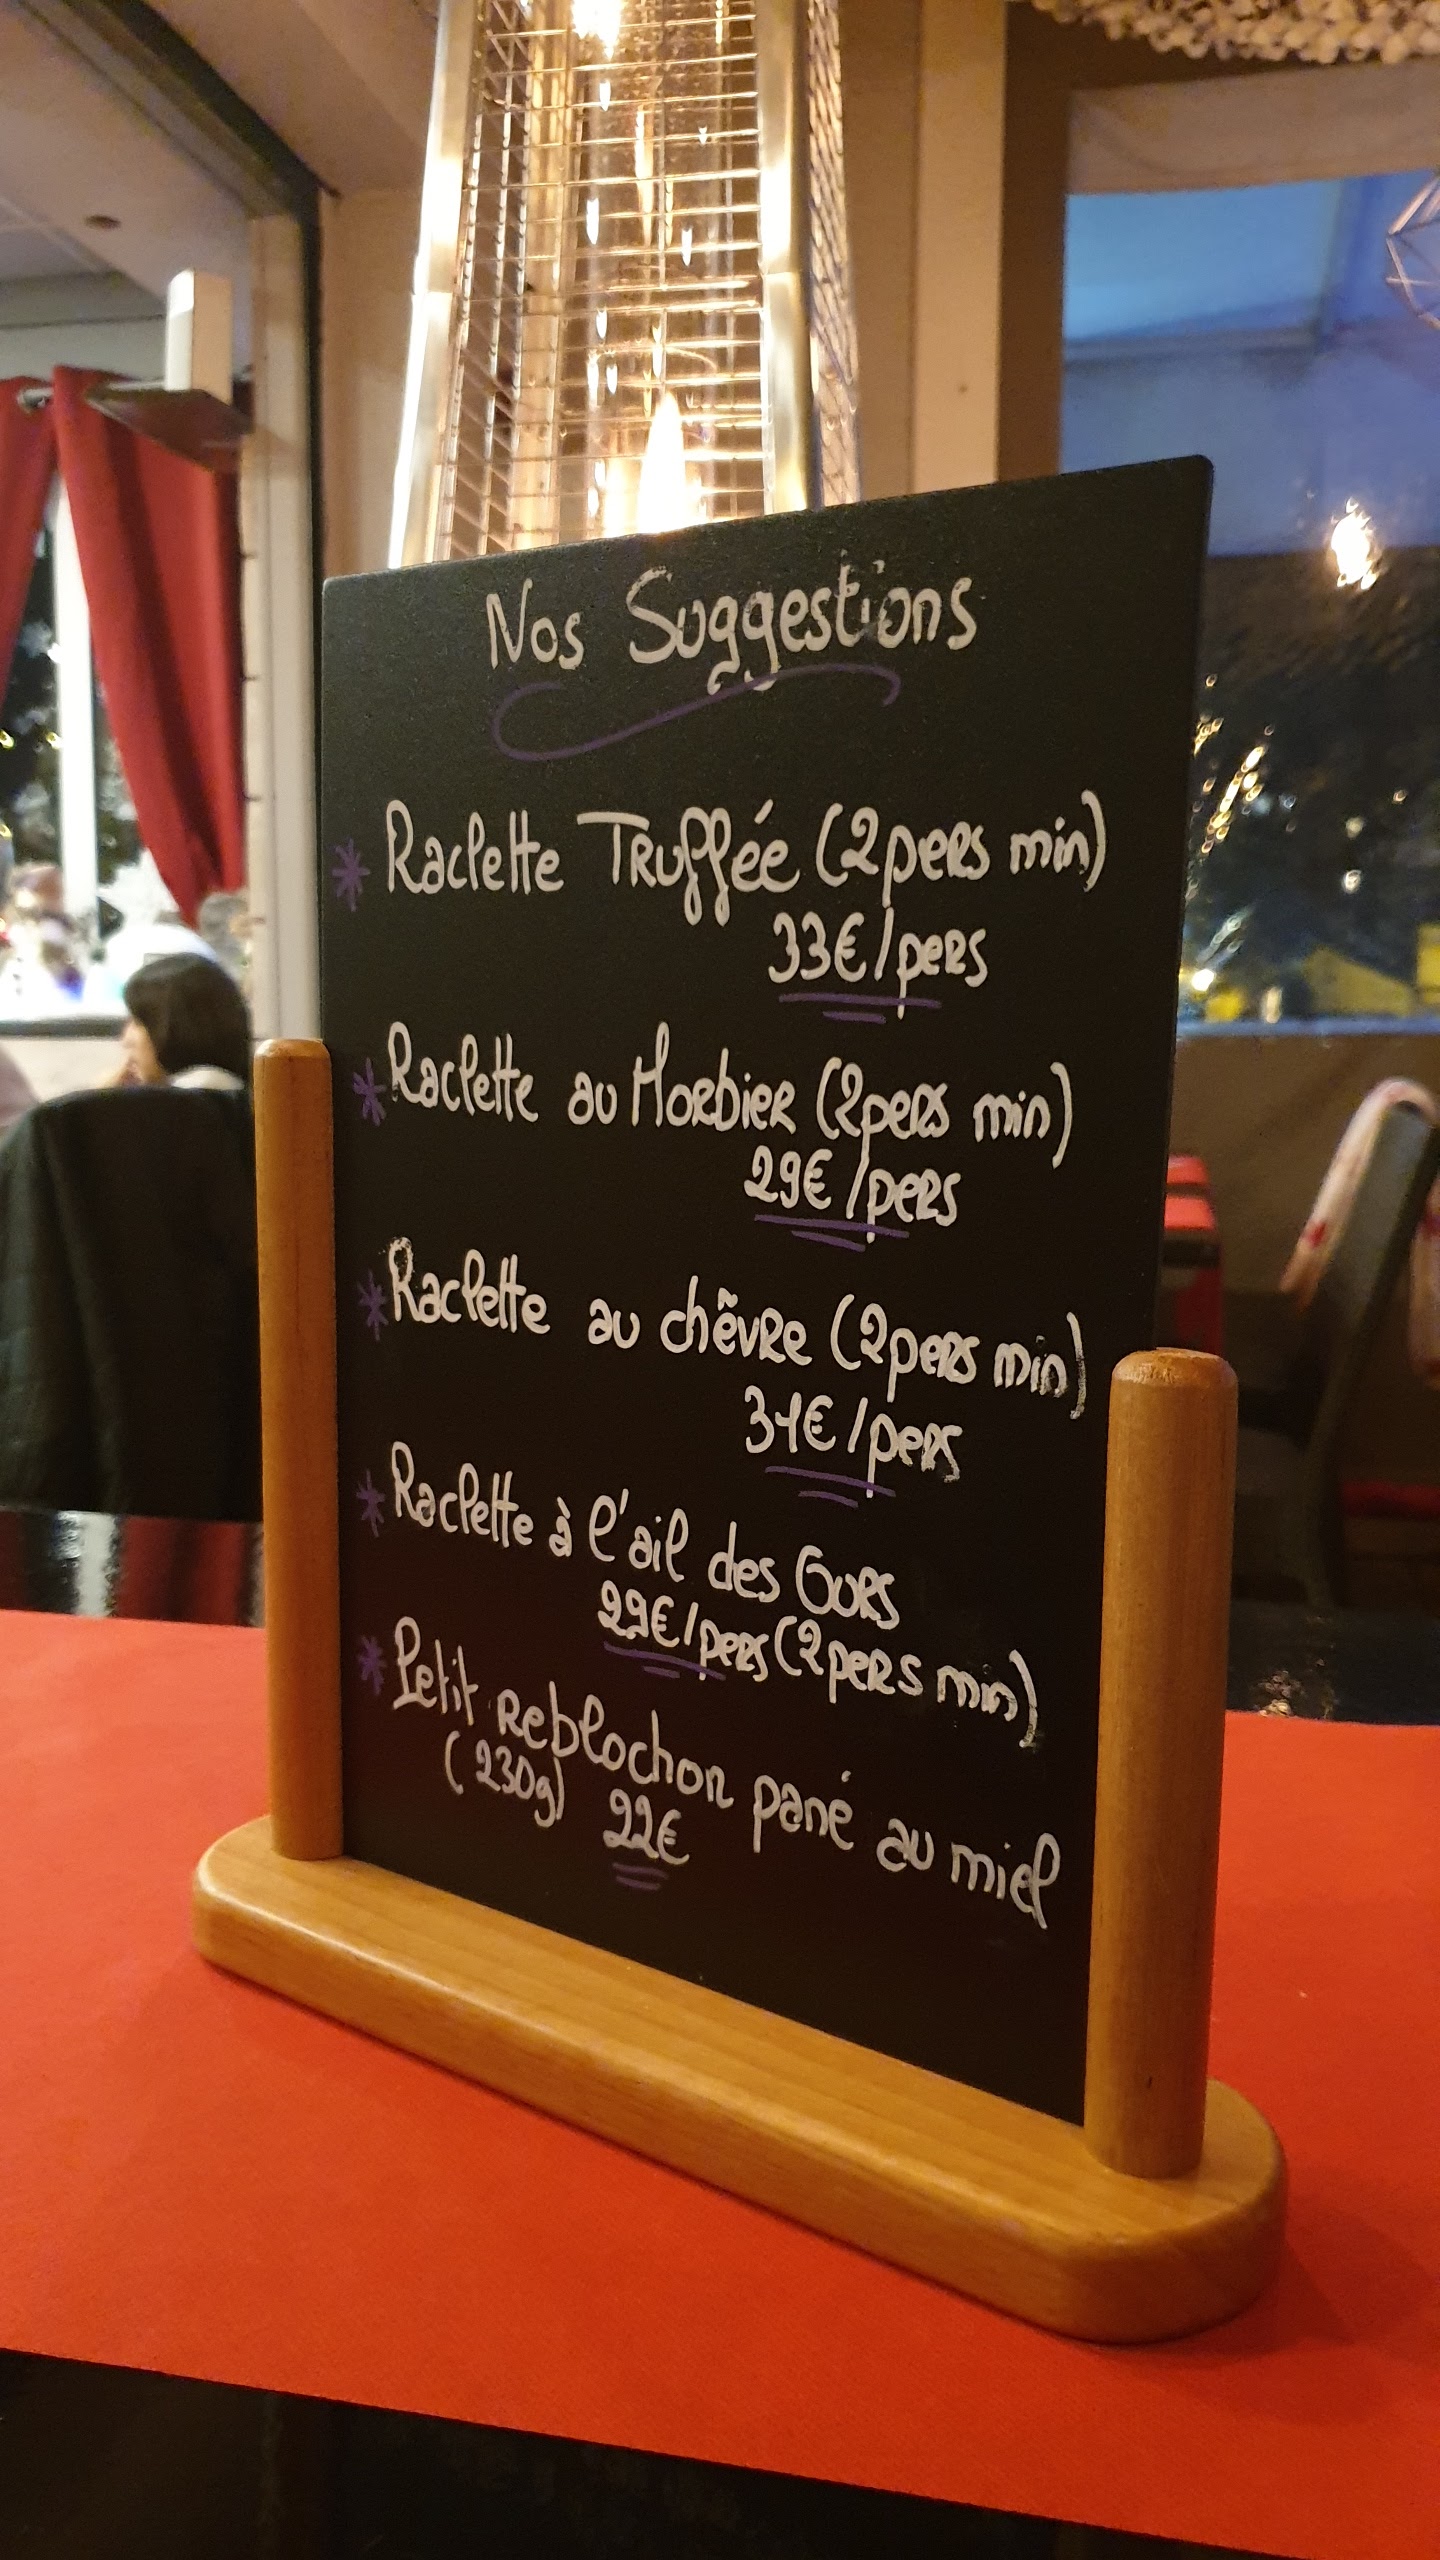 Nos Suggestions
* Raclette Truffée (2pers min)
33€/pers
* Raclette au Morbier (2pers min)
29€/pers
* Raclette au chêvre (2pers min)
31€/pers
* Raclette à l'ail des Ours
29€/pers (2pers min)
* Petit reblochon pané au miel
(230g) 22€